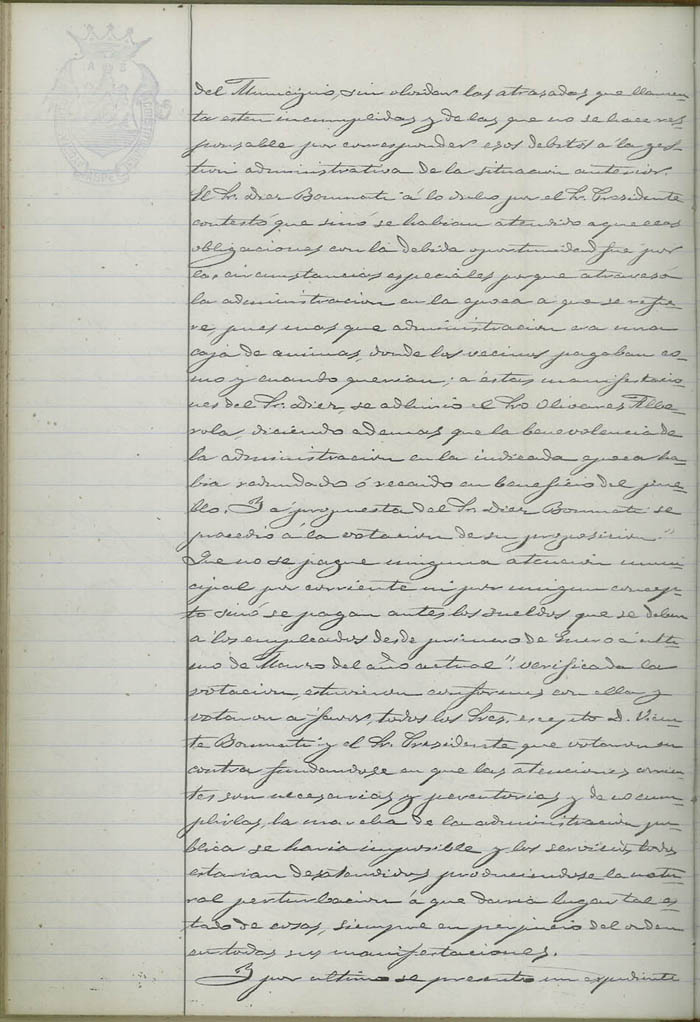 del Municipio, sin olvidar las atrasadas que lamen-
ta esten incumplidas y de las que no se hace res-
ponsable por corresponder esos debitos á la ges-
tion administrativa de la situacion anterior.
El Sr. Diez Bonmati á lo dicho por el Sr. Presidente
contestó que sinó se habian atendido aquellas
obligaciones con la debida oportunidad fué por
las circunstancias especiales porque atravesó
la administracion en la epoca a que se refie-
re, pues mas que administracion era una
caja de animas, donde los vecinos pagaban co-
mo y cuando querian; a éstas manifestacio-
nes del Sr. Diez, se adhirió el Sro Olivares Albe-
rola, diciendo ademas que la benevolencia de
la administracion en la indicada epoca ha-
bia redundado ó recaido en beneficio del pue-
blo. Y á propuesta del Sr. Diez Bonmati se
procedió á la votacion de su proposicion "
Que no se pague ninguna atencion muni-
cipal por corriente ni por ningun concep-
to sinó se pagan antes los sueldos que se deben
a los empleados desde primero de Enero á ulti-
mo de Marzo del año actual". verificada la
votacion, estuvieron conformes con ella y
votaron a favor, todos los Sres. escepto D. Vicen-
te Bonmati y el Sr. Presidente que votaron en
contra fundandose en que las atenciones corrien-
tes son necesarias y perentorias y de no cum-
plirlas, la marcha de la administracion pu-
blica se haria imposible y los servicios todos
estarian desatendidos produciendose la natu-
ral perturbacion á que daria lugar tal es-
tado de cosas, siempre en perjuicio del orden
en todas sus manifestaciones.
Y por ultimo se presentó un espediente